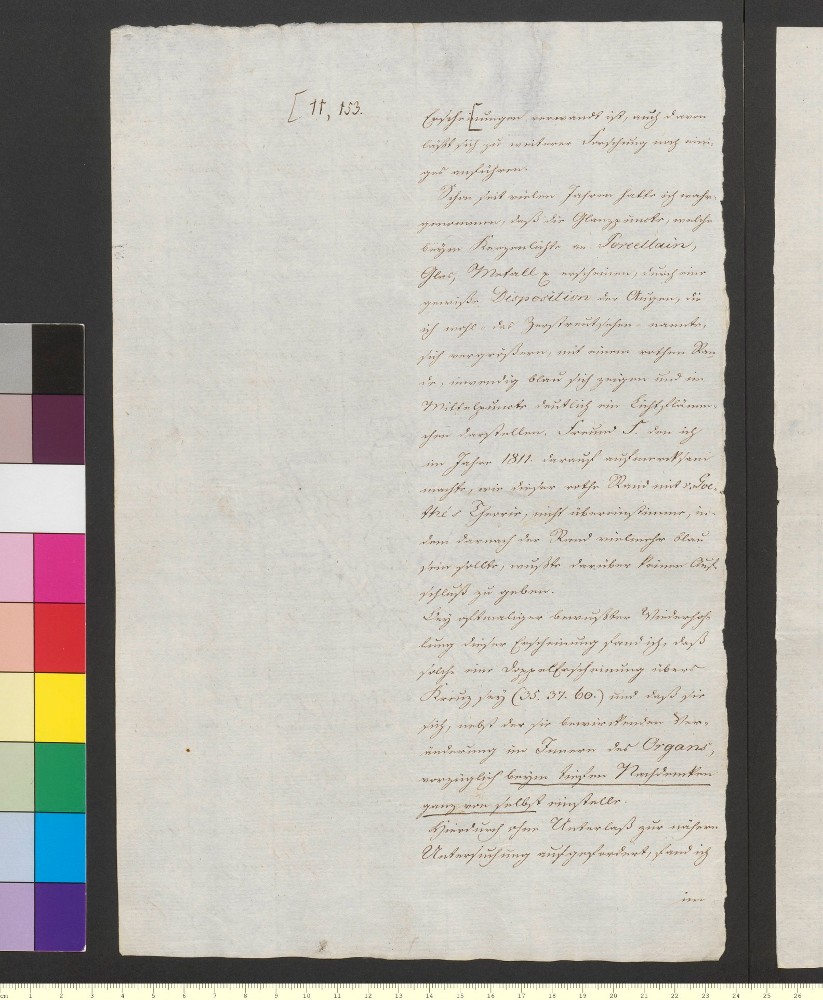 [ 11, 153.
Erschei[nungen verwandt ist, auch davon
läßt sich zu weiterer Forschung noch eini-
ges anführen.
Schon seit vielen Jahren hatte ich wahr-
genommen, daß die Glanzpuncte, welche
beym Kerzenlichte an Porcellain,
Glas, Metall p erscheinen, durch eine
gewiße Disposition der Augen, die
ich mehr das Zerstreutsehen nannte,
sich vergrößern, mit einem rothen Ran-
de, inwendig blau sich zeigen und im
Mittelpuncte deutlich ein Lichtflämm-
chen darstellen. Freund S. den ich
im Jahre 1811. darauf aufmerksam
machte, wie dieser rothe Rand mit v. Goe-
the's Theorie, nicht übereinstimme, in-
dem darnach der Rand vielmehr blau
sein sollte, wußte darüber keinen Auf-
schluß zu geben.
Bey oftmaliger bewußter Wiederho-
lung dieser Erscheinung fand ich, daß
solche eine DoppelErscheinung übers
Kreuz sey (35. 37. 60.) und daß sie
sich, nebst der sie bewirkenden Ver-
änderung im Innern des Organs,
vorzüglich beym tiefen Nachdencken
ganz von selbst einstelle.
Hierdurch ohne Unterlaß zur nähern
Untersuchung aufgefordert, fand ich
im